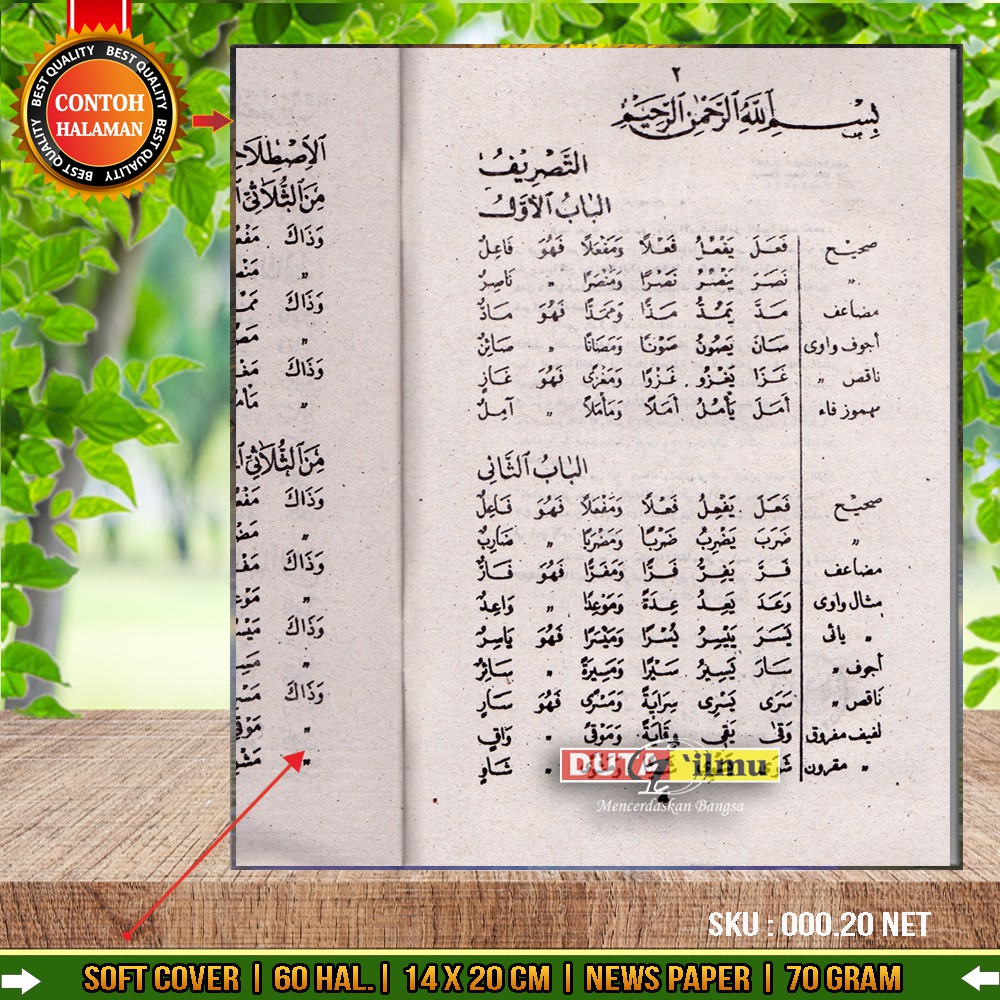 BEST QUALITY BEST QUALITY BEST QUALITY BEST QUALITY
CONTOH
HALAMAN
٢
بِسْمِ اللَّهِ الرَّحْمٰنِ الرَّحِيْمِ
التَّصْرِيْفُ
الْبَابُ الْأَوَّلُ
صحيح فَعَلَ يَفْعُلُ فَعْلًا وَمَفْعَلًا فَهُوَ فَاعِلٌ
〃 نَصَرَ يَنْصُرُ نَصْرًا وَمَنْصَرًا 〃 نَاصِرٌ
مضاعف مَدَّ يَمُدُّ مَدًّا وَمَمَدًّا فَهُوَ مَادٌّ
أجوف واوى صَانَ يَصُوْنُ صَوْنًا وَمَصَانًا 〃 صَائِنٌ
ناقص 〃 غَزَا يَغْزُو غَزْوًا وَمَغْزًى فَهُوَ غَازٍ
مهموز فاء أَمَلَ يَأْمُلُ أَمَلًا وَمَأْمَلًا 〃 آمِلٌ
الْبَابُ الثَّانِى
صحيح فَعَلَ يَفْعِلُ فَعْلًا وَمَفْعَلًا فَهُوَ فَاعِلٌ
〃 ضَرَبَ يَضْرِبُ ضَرْبًا وَمَضْرَبًا 〃 ضَارِبٌ
مضاعف فَرَّ يَفِرُّ فَرًّا وَمَفَرًّا فَهُوَ فَارٌّ
مثال واوى وَعَدَ يَعِدُ عِدَةً وَمَوْعِدًا 〃 وَاعِدٌ
〃 يائى يَسَرَ يَيْسِرُ يُسْرًا وَمَيْسَرًا فَهُوَ يَاسِرٌ
أجوف 〃 سَارَ يَسِيْرُ سَيْرًا وَمَسِيْرَةً 〃 سَائِرٌ
ناقص 〃 سَرَى يَسْرِى سِرَايَةً وَمَسْرًى فَهُوَ سَارٍ
لفيف مفروق وَقَى يَقِى وِقَايَةً وَمَوْقًى 〃 وَاقٍ
〃 مقرون 〃 شَاوٍ
مِنَ الثُّلَاثِيِّ
وَذَاكَ
〃
وَذَاكَ
وَذَاكَ
〃
مِنَ الثُّلَاثِيِّ
وَذَاكَ
وَذَاكَ
〃
وَذَاكَ
〃
وَذَاكَ
〃
〃
DUTA 'ilmu
Mencerdaskan Bangsa
SKU : 000.20 NET
SOFT COVER | 60 HAL. | 14 X 20 CM | NEWS PAPER | 70 GRAM